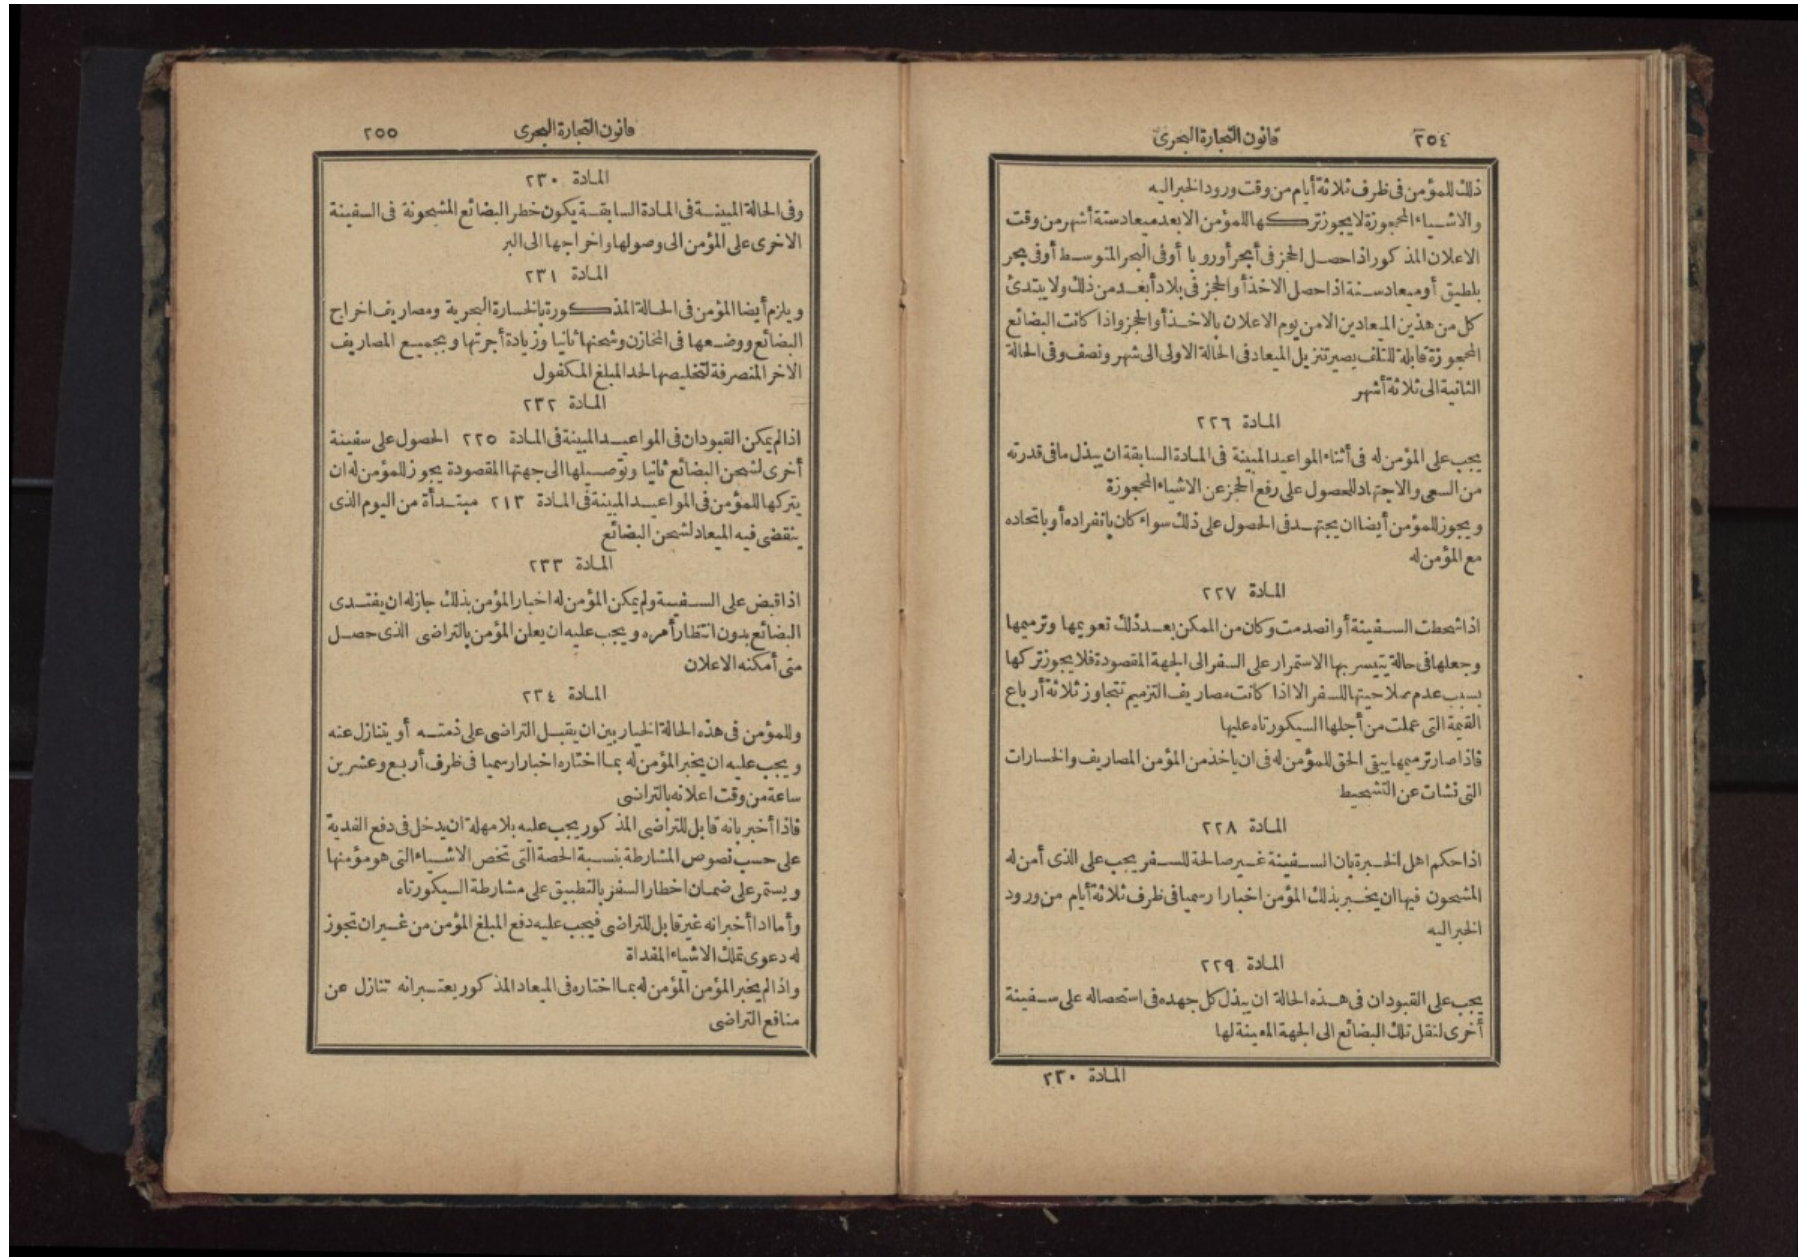 ٢٥٤
قانون التجارة البحرى
ذلك للمؤمن فى ظرف ثلاثة أيام من وقت ورود الخبر اليه
والاشياء المحجوزة لا يجوز تركها للمؤمن الا بعد ميعاد ستة أشهر من وقت
الاعلان المذكور اذا حصل الحجز فى أبحر أوروبا أو فى البحر المتوسط أو فى بحر
بلطيق أو ميعاد سنة اذا حصل الاخذ أو الحجز فى بلاد أبعد من ذلك ولا يبتدئ
كل من هذين الميعادين الا من يوم الاعلان بالاخذ أو الحجز واذا كانت البضائع
المحجوزة قابلة للتلف يصير تنزيل الميعاد فى الحالة الاولى الى شهر ونصف وفى الحالة
الثانية الى ثلاثة أشهر
المادة ٢٢٦
يجب على المؤمن له فى أثناء المواعيد المبينة فى المادة السابقة ان يبذل ما فى قدرته
من السعى والاجتهاد للحصول على رفع الحجز عن الاشياء المحجوزة
ويجوز للمؤمن أيضا ان يجتهد فى الحصول على ذلك سواء كان بانفراده أو باتحاده
مع المؤمن له
المادة ٢٢٧
اذا شحطت السفينة أو انصدمت وكان من الممكن بعد ذلك تعويمها وترميمها
وجعلها فى حالة يتيسر بها الاستمرار على السفر الى الجهة المقصودة فلا يجوز تركها
بسبب عدم صلاحيتها للسفر الا اذا كانت مصاريف الترميم تتجاوز ثلاثة أرباع
القيمة التى عملت من أجلها السيكورتاه عليها
فاذا صار ترميمها يبقى الحق للمؤمن له فى ان ياخذ من المؤمن المصاريف والخسارات
التى نشات عن التشحيط
المادة ٢٢٨
اذا حكم اهل الخبرة بان السفينة غير صالحة للسفر يجب على الذى أمن له
المشحون فيها ان يخبر بذلك المؤمن اخبارا رسميا فى ظرف ثلاثة أيام من ورود
الخبر اليه
المادة ٢٢٩
يجب على القبودان فى هذه الحالة ان يبذل كل جهده فى استحصاله على سفينة
أخرى لنقل تلك البضائع الى الجهة المعينة لها
المادة ٢٣٠
٢٥٥
قانون التجارة البحرى
المادة ٢٣٠
وفى الحالة المبينة فى المادة السابقة يكون خطر البضائع المشحونة فى السفينة
الاخرى على المؤمن الى وصولها واخراجها الى البر
المادة ٢٣١
ويلزم أيضا المؤمن فى الحالة المذكورة بالخسارة البحرية ومصاريف اخراج
البضائع ووضعها فى المخازن وشحنها ثانيا وزيادة أجرتها وبجميع المصاريف
الاخر المنصرفة لتخليصها لحد المبلغ المكفول
المادة ٢٣٢
اذا لم يمكن القبودان فى المواعيد المبينة فى المادة ٢٢٥ الحصول على سفينة
أخرى لشحن البضائع ثانيا وتوصيلها الى جهتها المقصودة يجوز للمؤمن له ان
يتركها للمؤمن فى المواعيد المبينة فى المادة ٢١٣ مبتدأة من اليوم الذى
ينقضى فيه الميعاد لشحن البضائع
المادة ٢٣٣
اذا قبض على السفينة ولم يمكن المؤمن له اخبار المؤمن بذلك جاز له ان يفتدى
البضائع بدون انتظار أمره ويجب عليه ان يعلن المؤمن بالتراضى الذى حصل
متى أمكنه الاعلان
المادة ٢٣٤
وللمؤمن فى هذه الحالة الخيار بين ان يقبل التراضى على ذمته أو يتنازل عنه
ويجب عليه ان يخبر المؤمن له بما اختاره اخبارا رسميا فى ظرف أربع وعشرين
ساعة من وقت اعلانه بالتراضى
فاذا أخبر بانه قابل للتراضى المذكور يجب عليه بلا مهلة ان يدخل فى دفع الفدية
على حسب نصوص المشارطة بنسبة الحصة التى تخص الاشياء التى هو مؤمنها
ويستمر على ضمان اخطار السفر بالتطبيق على مشارطة السيكورتاه
وأما اذا أخبر انه غير قابل للتراضى فيجب عليه دفع المبلغ المؤمن من غير ان تجوز
له دعوى تملك الاشياء المفداة
واذا لم يخبر المؤمن المؤمن له بما اختاره فى الميعاد المذكور يعتبر انه تنازل عن
منافع التراضى